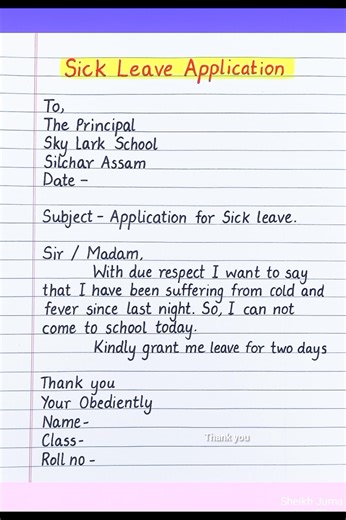 Sick Leave Application
To,
The Principal
Sky Lark School
Silchar Assam
Date -
Subject - Application for Sick leave.
Sir / Madam,
With due respect I want to say
that I have been suffering from cold and
fever since last night. So, I can not
come to school today.
Kindly grant me leave for two days
Thank you
Your Obediently
Name-
Thank you
Class-
Roll no -
Sheikh Juma